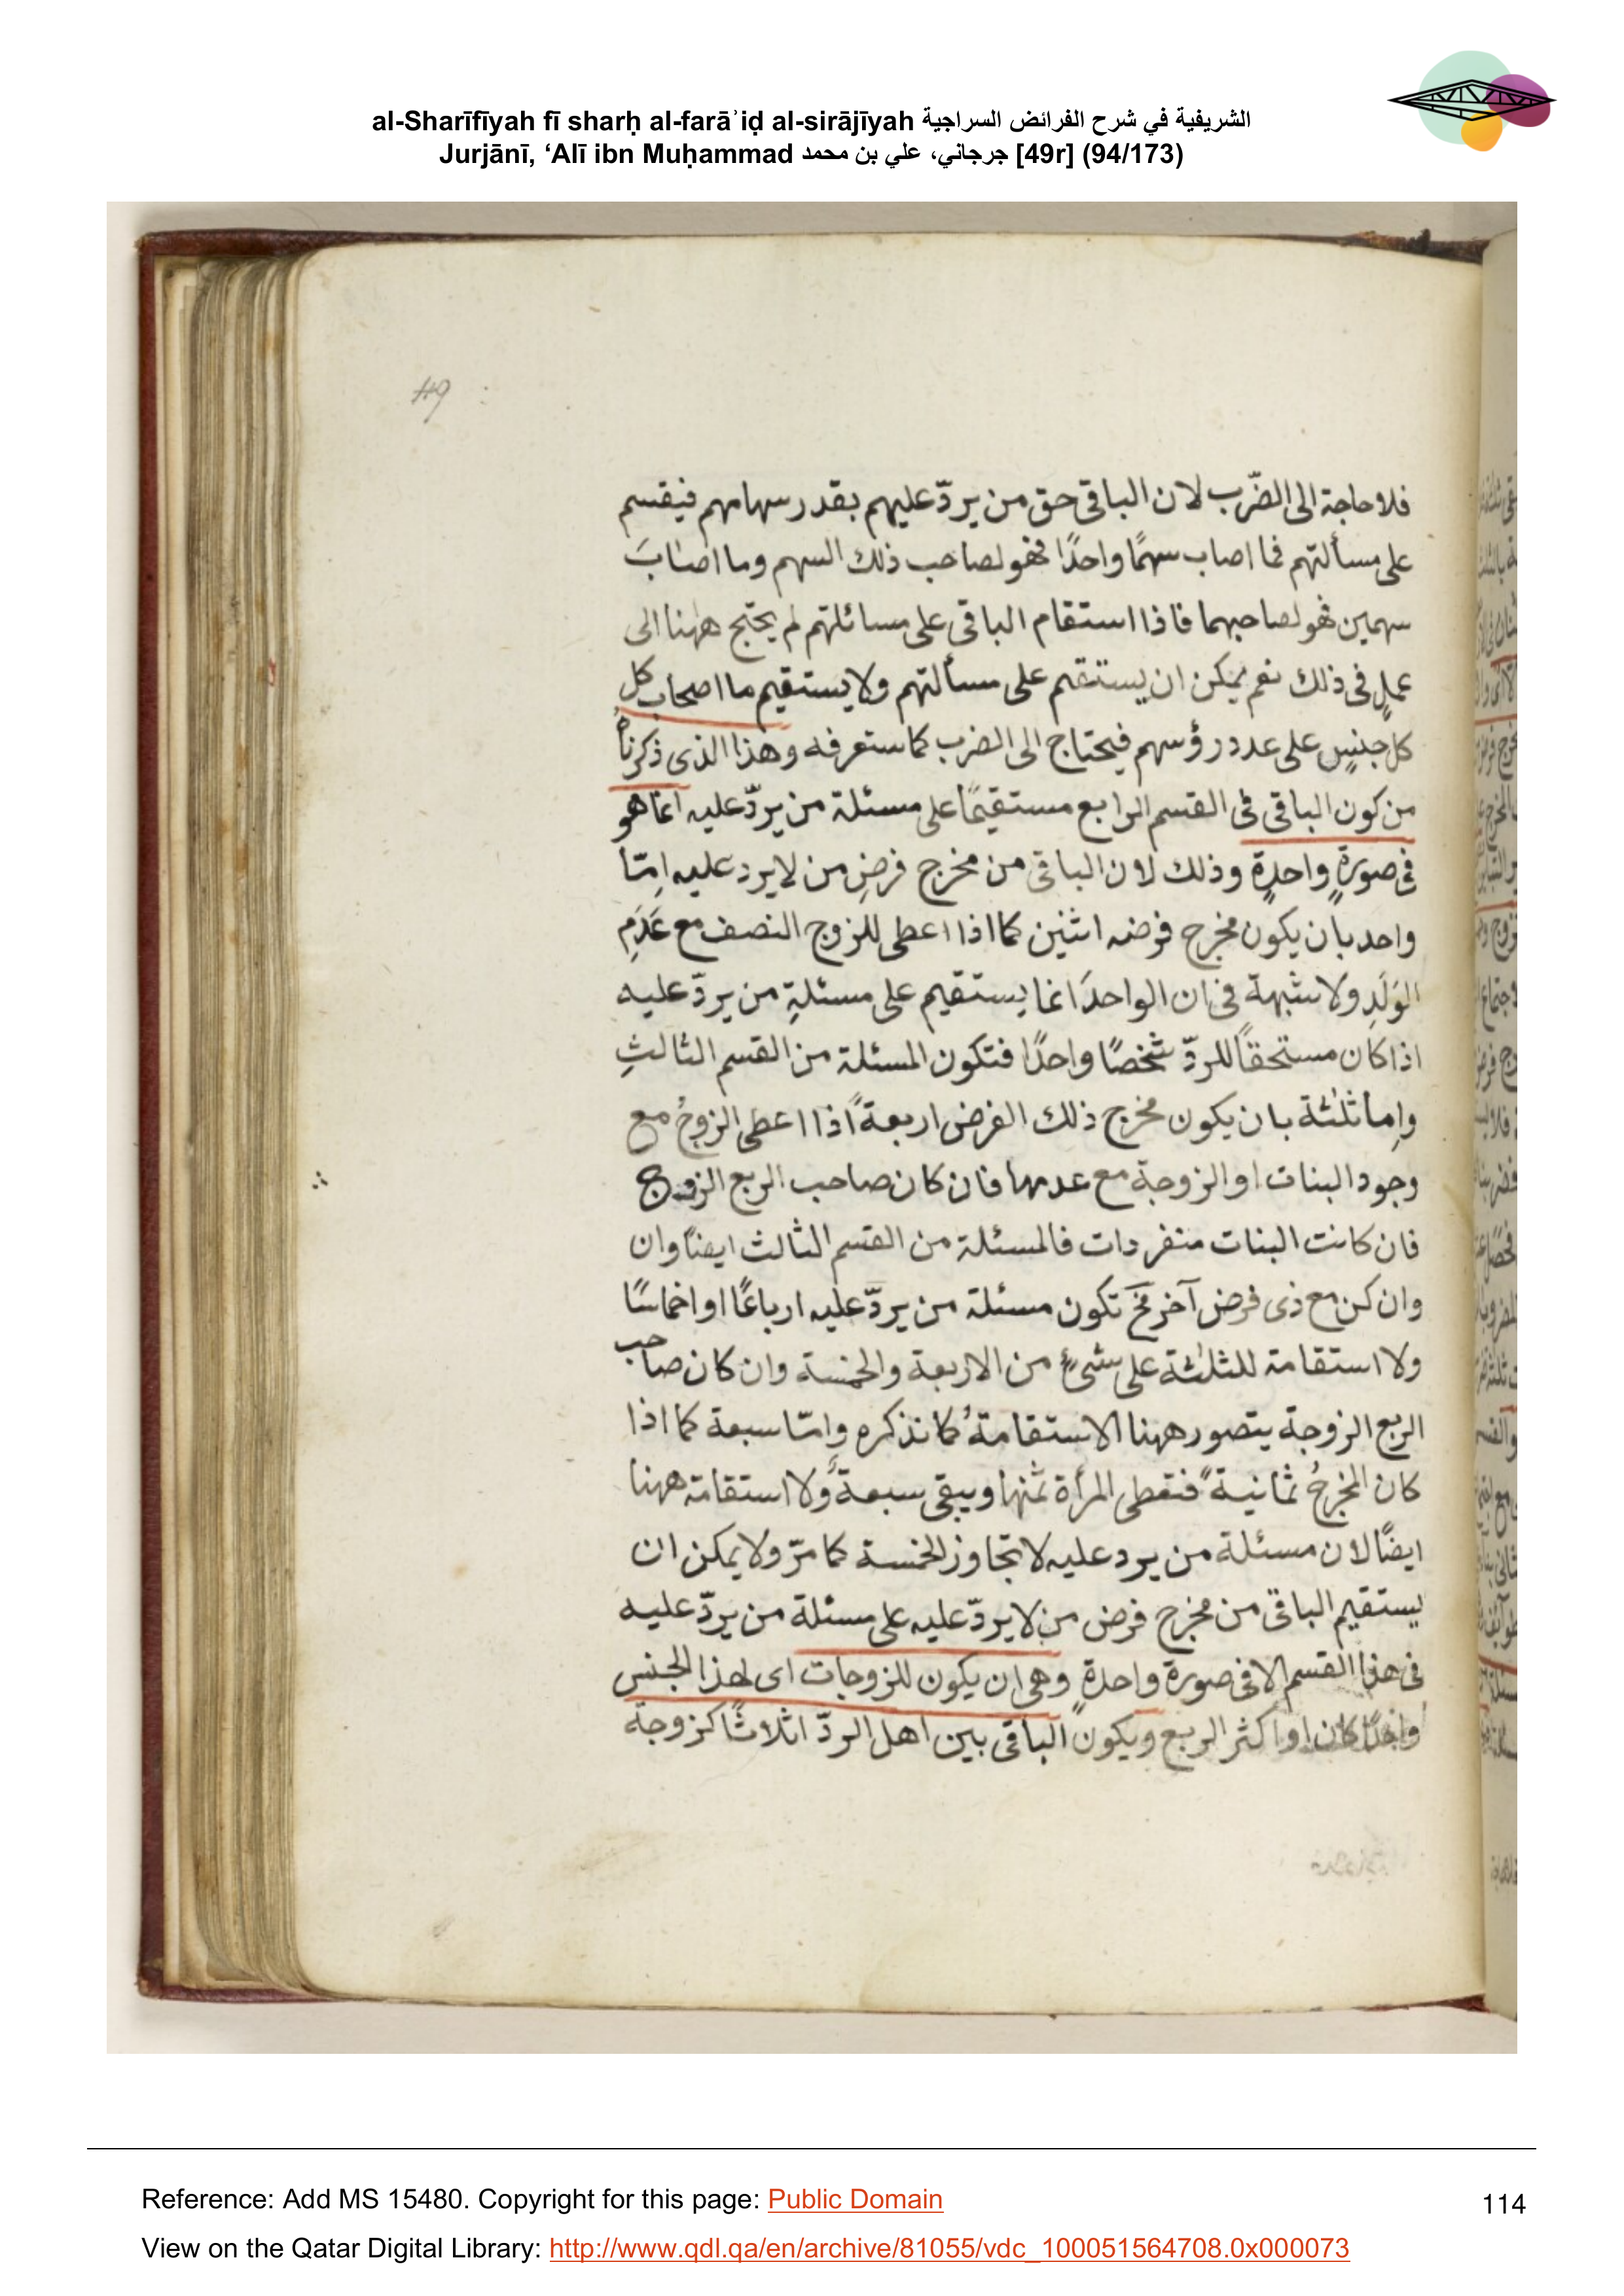 al-Sharīfīyah fī sharḥ al-farāʾiḍ al-sirājīyah الشريفية في شرح الفرائض السراجية
Jurjānī, ‘Alī ibn Muḥammad جرجاني، علي بن محمد [49r] (94/173)
49
فلا حاجة الى الضّرب لان الباقى حق من يردّ عليهم بقدر سهامهم فيقسم
على مسألتهم فما اصاب سهمًا واحدًا فهو لصاحب ذلك السهم وما اصابَ
سهمين فهو لصاحبهما فاذا استقام الباقى على مسائلتهم لم يحتج ههنا الى
عملٍ فى ذلك نعم يمكن ان يستقم على مسألتهم ولا يستقيم ما اصحاب كل
كل جنسٍ على عدد رؤسهم فيحتاج الى الضرب كما ستعرفه وهذا الذى ذكرناهُ
من كون الباقى فى القسم الرابع مستقيمًا على مسئلة من يردّ عليه انما هو
فى صورةٍ واحدةٍ وذلك لان الباقى من مخرج فرضِ من لا يرد عليه اِمّا
واحد بان يكون مخرج فرضه اثنين كما اذا اعطى للزوج النصف مع عَدَمِ
الوَلَدِ ولا شبهة فى ان الواحدَ انما يستقيم على مسئلةِ من يردّ عليه
اذا كان مستحقاً للردّ شخصًا واحدًا فتكون المسئلة من القسم الثالثِ
وإما ثلثة بان يكون مخرج ذلك الفرض اربعةً اذا اعطى الزوجُ مع
وجود البنات او الزوجة مع عدمها فان كان صاحب الربع الزوج
فان كانت البنات منفردات فالمسئلة من القسم الثالث ايضًا وان
وان كن مع ذى فرض آخر فح تكون مسئلة من يردّ عليه ارباعًا او اخماسًا
ولا استقامة للثلثة على شىءٍ من الاربعة والخمسة وان كان صاحب
الربع الزوجة يتصور ههنا الاستقامةُ كما نذكره وإمّا سبعة كما اذا
كان المخرجُ ثمانيةً فتعطى المرأة ثمنها ويبقى سبعةٌ ولا استقامة ههنا
ايضًا لان مسئلة من يرد عليه لا تجاوز الخمسة كما مرّ ولا يمكن ان
يستقيم الباقى من مخرج فرض من لا يردّ عليه على مسئلة من يردّ عليه
فى هذا القسم الا فى صورة واحدةٍ وهى ان يكون للزوجات اى لهذا الجنس
واحدًا كان او اكثر الربع ويكون الباقى بين اهل الردّ اثلاثًا كزوجة
Reference: Add MS 15480. Copyright for this page: Public Domain
114
View on the Qatar Digital Library: http://www.qdl.qa/en/archive/81055/vdc_100051564708.0x000073